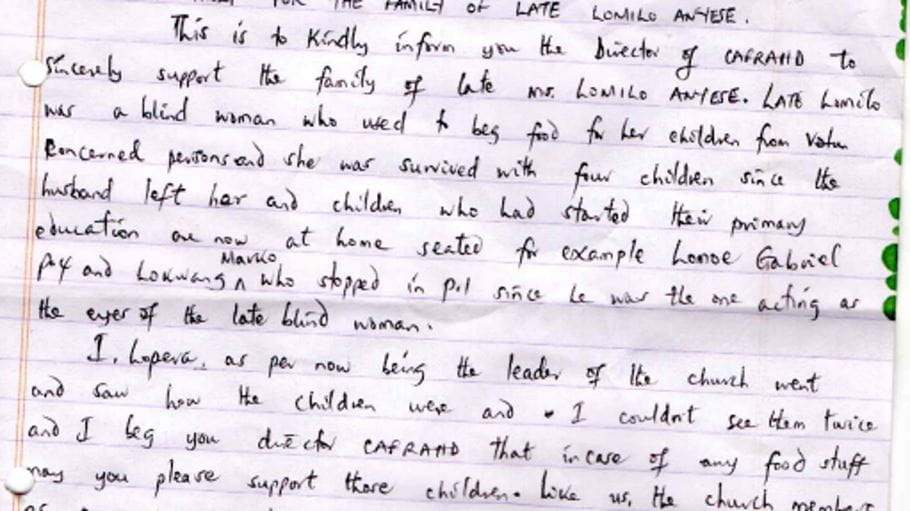 FOR THE FAMILY OF LATE LOMILO ANYESE.
This is to kindly inform you the Director of CAFRAHD to
sincerely support the family of late ms. LOMILO ANYESE. LATE Lomilo
was a blind woman who used to beg food for her children from
concerned persons and she was survived with four children since the
husband left her and children who had started their primary
education are now at home seated for example Gabriel
Marko
P.4 and Lokwang ^ who stopped in p.1 since he was the one acting as
the eyes of the late blind woman.
I, Lopera, as per now being the leader of the church went
and saw how the children were and I couldn't see them twice
and I beg you director CAFRAHD that incase of any food stuff
may you please support those children. Like us, the church members